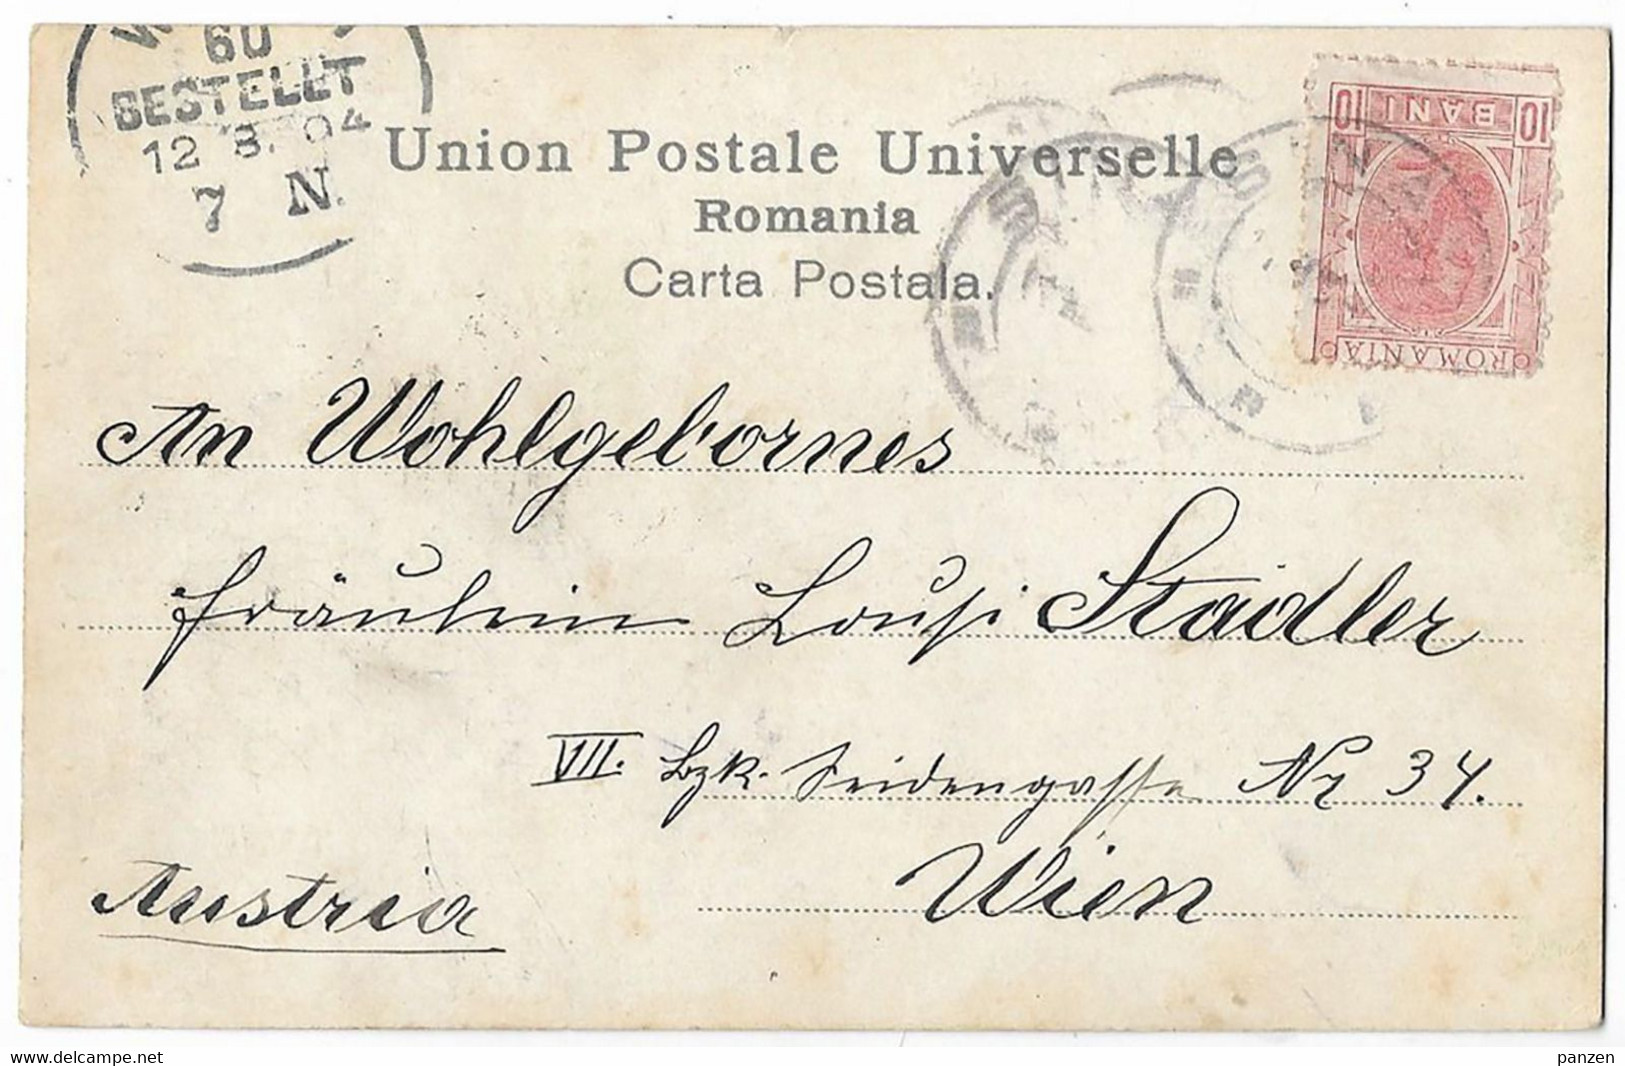 60
BESTELLT
12 3. 04
7 N.
Union Postale Universelle
Romania
Carta Postala.
10 BANI 10
ROMANIA
An Wohlgebornes
Fräulein Lousi Stadler
VII. Bzk. Seidengasse Nr 34.
Wien
Austria
www.delcampe.net
panzen